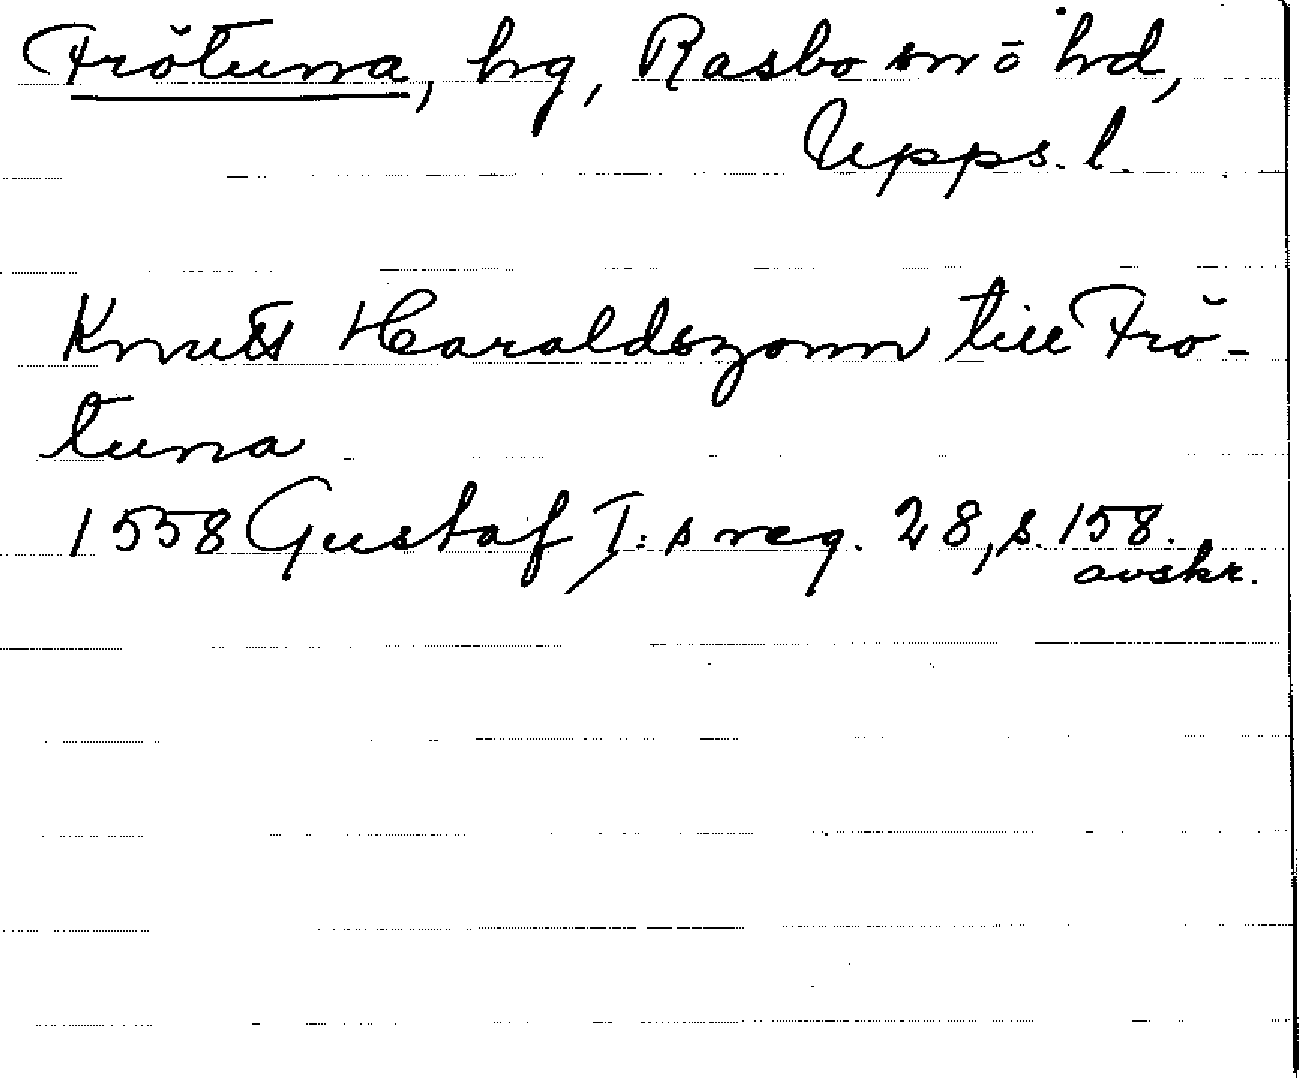 Frötuna, hg, Rasbo sn o hd,
Upps. l.
Knutt Haraldszonn till Frö-
tuna
1558 Gustaf I:s reg. 28, s. 158.
avskr.